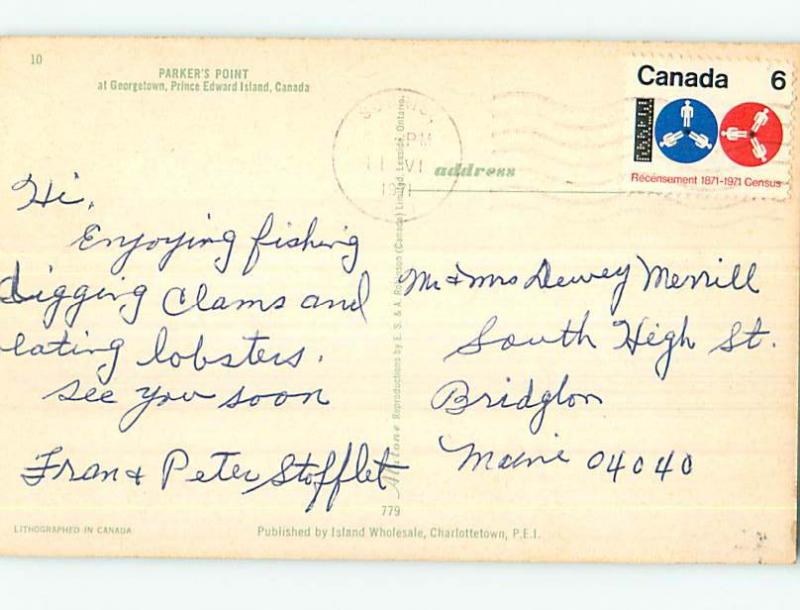 10
PARKER'S POINT
at Georgetown, Prince Edward Island, Canada
Canada 6
Recensement 1871-1971 Census
PM
11 VI
1971
address
Hi,
Enjoying fishing
digging clams and
eating lobsters.
See you soon
Fran & Peter Stofflet
Mr & Mrs Dewey Merrill
South High St.
Bridgton
Maine 04040
Reproductions by E. S. & A. Robinson (Canada) Limited, Leaside, Ontario.
779
LITHOGRAPHED IN CANADA
Published by Island Wholesale, Charlottetown, P.E.I.